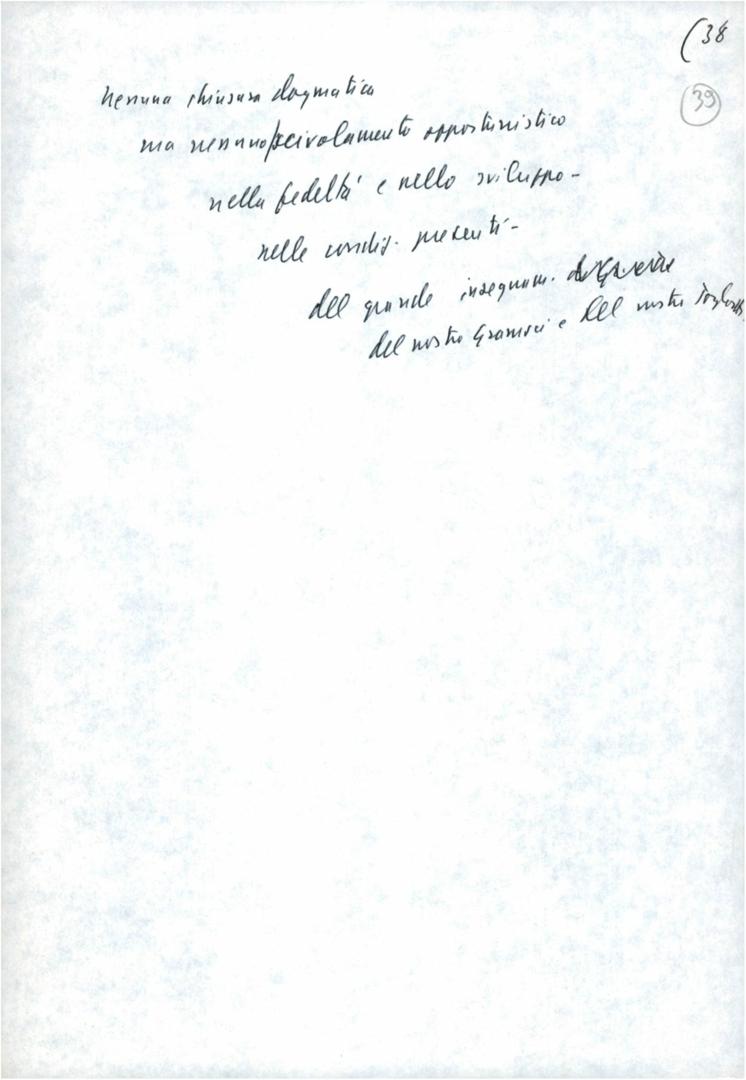 (38
39
nessuna chiusura dogmatica
ma nessuno scivolamento opportunistico
nella fedeltà e nello sviluppo -
nelle condiz. presenti -
del grande insegnam.
del nostro Gramsci e del nostro Togliatti